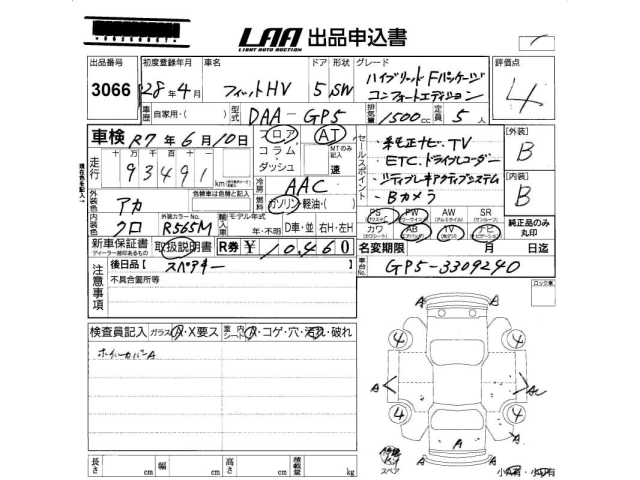 LAA 出品申込書
LIGHT AUTO AUCTION
出品番号 初度登録年月 車名 ドア 形状 グレード 評価点
3066 28年4月 フィットHV 5 SW ハイブリッド Fパッケージ コンフォートエディション 4
車歴 自家用・( ) 型式 DAA-GP5 排気量 1500cc 定員 5人
車検 R7年6月10日 フロア AT セールスポイント ・純正ナビ、TV [外装]
コラム MTのみ記入 ・ETC、ドライブレコーダー B
走行 十万 万 千 百 十 ダッシュ 速 ・シティブレーキアクティブシステム [内装]
93491 km 冷房 AAC ・Bカメラ B
外装色 アカ 色替車は色替と記入 燃料 ガソリン・軽油・( ) PS PW AW SR
内装色 クロ 外装カラーNo. R565M 輸入車 モデル年式 年・不明 D車・並 右H・左H カワ AB TV ナビ 純正品のみ丸印
新車保証書 取扱説明書 R券 ¥10,460 名変期限 月 日迄
ディーラー捺印あるもの
注意事項 後日品【 スペアキー 】 車台No. GP5-3309240
不具合箇所等 ロック車
検査員記入 ガラス A・X要ス 室内シート A・コゲ・穴・汚れ・破れ
ホイールカバーA
4 4
A A
4 4
A A A
スペア
長さ cm 幅 cm 高さ cm 積載量 kg
現在色を記入→